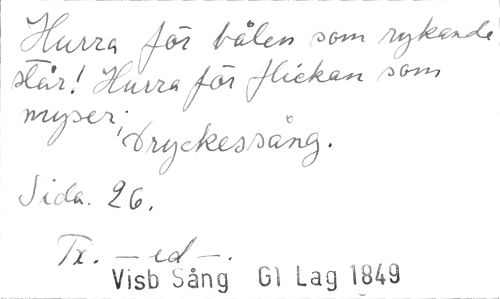 Hurra för bålen som rykande
står! Hurra för flickan som
myser; Dryckessång.
Sida. 26.
Tx. — ed —.
Visb Sång Gl Lag 1849